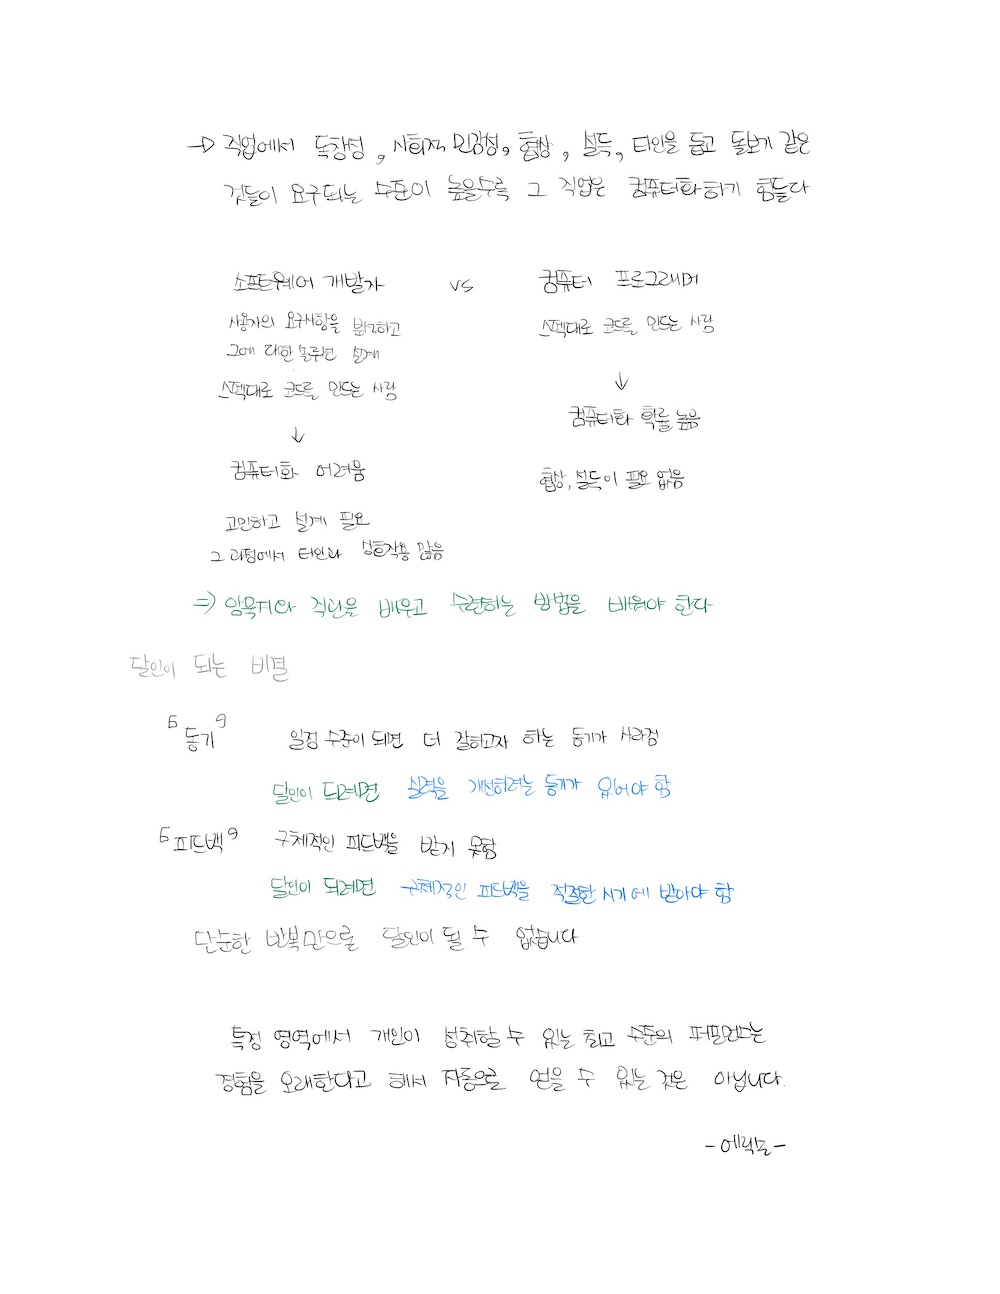 → 직업에서 독창성, 사회적 민감성, 협상, 설득, 타인을 돕고 돌보기 같은
것들이 요구되는 수준이 높을수록 그 직업은 컴퓨터화하기 힘들다
소프트웨어 개발자 vs 컴퓨터 프로그래머
사용자의 요구사항을 분석하고
그에 대한 솔루션 설계
스펙대로 코드를 만드는 사람
↓
컴퓨터화 어려움
고민하고 설계 필요
그 과정에서 타인과 상호작용 많음
스펙대로 코드를 만드는 사람
↓
컴퓨터화 확률 높음
협상, 설득이 필요 없음
⇒ 암묵지와 직관을 배우고 수련하는 방법을 배워야 한다
달인이 되는 비결
"동기" 일정 수준이 되면 더 잘하고자 하는 동기가 사라짐
달인이 되려면 실력을 개선하려는 동기가 있어야 함
"피드백" 구체적인 피드백을 받지 못함
달인이 되려면 구체적인 피드백을 적절한 시기에 받아야 함
단순한 반복만으로 달인이 될 수 없습니다
특정 영역에서 개인이 성취할 수 있는 최고 수준의 퍼포먼스는
경험을 오래한다고 해서 자동으로 얻을 수 있는 것은 아닙니다.
-에릭손-